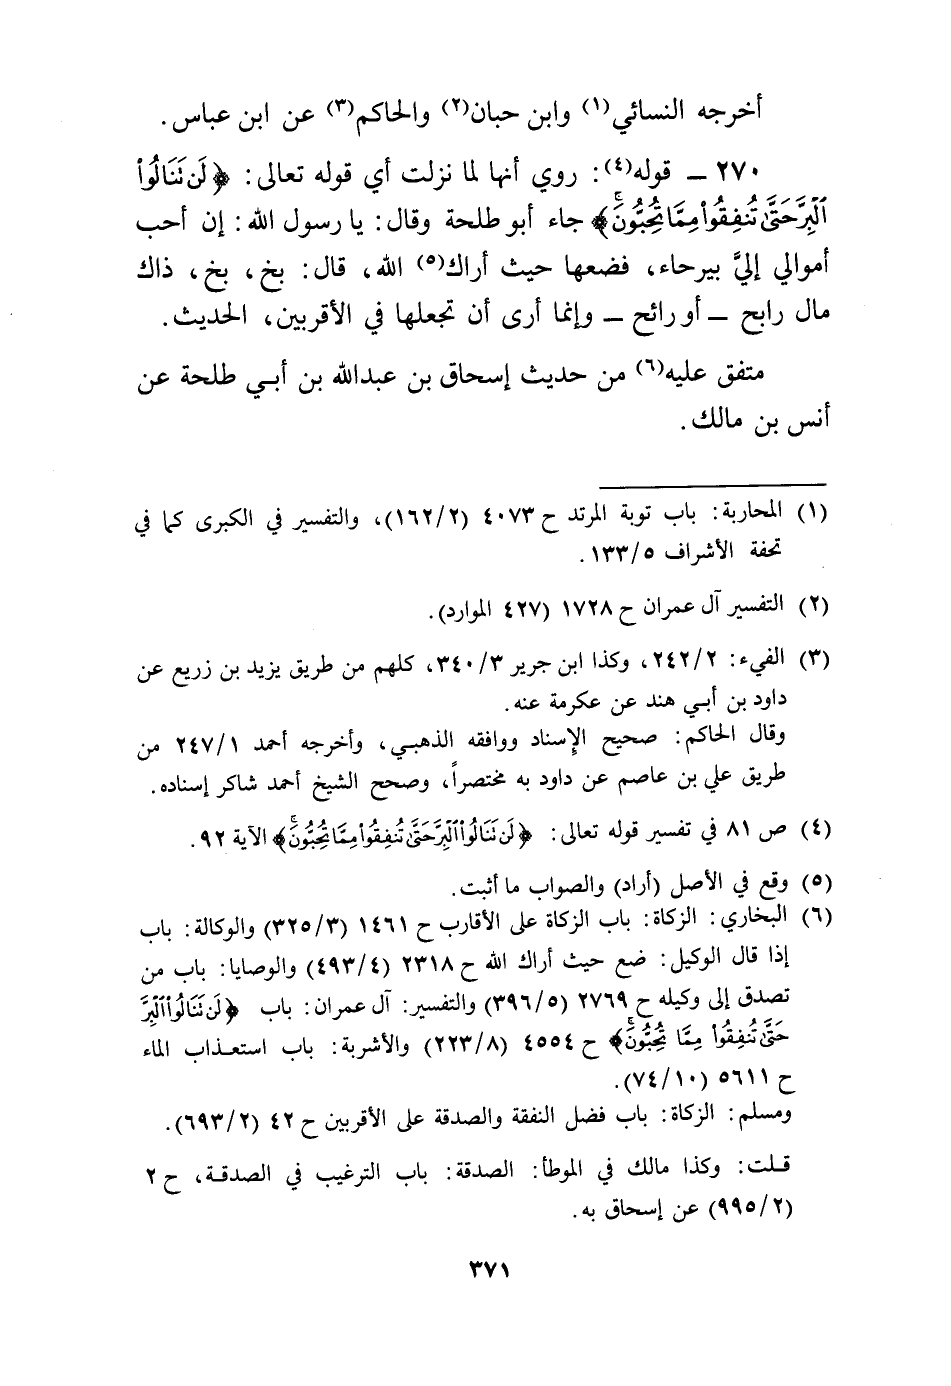 أخرجه النسائي(١) وابن حبان(٢) والحاكم(٣) عن ابن عباس.
٢٧٠ ــ قوله(٤): روي أنها لما نزلت أي قوله تعالى: ﴿لَن تَنَالُوا۟
ٱلْبِرَّ حَتَّىٰ تُنفِقُوا۟ مِمَّا تُحِبُّونَ ۚ﴾ جاء أبو طلحة وقال: يا رسول الله: إن أحب
أموالي إليَّ بيرحاء، فضعها حيث أراك(٥) الله، قال: بخ، بخ، ذاك
مال رابح ــ أو رائح ــ وإنما أرى أن تجعلها في الأقربين، الحديث.
متفق عليه(٦) من حديث إسحاق بن عبدالله بن أبـي طلحة عن
أنس بن مالك.
(١) المحاربة: باب توبة المرتد ح ٤٠٧٣ (١٦٢/٢)، والتفسير في الكبرى كما في
تحفة الأشراف ١٣٣/٥.
(٢) التفسير آل عمران ح ١٧٢٨ (٤٢٧ الموارد).
(٣) الفيء: ٢٤٢/٢، وكذا ابن جرير ٣٤٠/٣، كلهم من طريق يزيد بن زريع عن
داود بن أبـي هند عن عكرمة عنه.
وقال الحاكم: صحيح الإسناد ووافقه الذهبـي، وأخرجه أحمد ٢٤٧/١ من
طريق علي بن عاصم عن داود به مختصراً، وصحح الشيخ أحمد شاكر إسناده.
(٤) ص ٨١ في تفسير قوله تعالى: ﴿لَن تَنَالُوا۟ ٱلْبِرَّ حَتَّىٰ تُنفِقُوا۟ مِمَّا تُحِبُّونَ ۚ﴾ الآية ٩٢.
(٥) وقع في الأصل (أراد) والصواب ما أثبت.
(٦) البخاري: الزكاة: باب الزكاة على الأقارب ح ١٤٦١ (٣٢٥/٣) والوكالة: باب
إذا قال الوكيل: ضع حيث أراك الله ح ٢٣١٨ (٤٩٣/٤) والوصايا: باب من
تصدق إلى وكيله ح ٢٧٦٩ (٣٩٦/٥) والتفسير: آل عمران: باب ﴿لَن تَنَالُوا۟ ٱلْبِرَّ
حَتَّىٰ تُنفِقُوا۟ مِمَّا تُحِبُّونَ ۚ﴾ ح ٤٥٥٤ (٢٢٣/٨) والأشربة: باب استعـذاب الماء
ح ٥٦١١ (٧٤/١٠).
ومسلم: الزكاة: باب فضل النفقة والصدقة على الأقربين ح ٤٢ (٦٩٣/٢).
قـلت: وكذا مالك في الموطأ: الصدقة: باب الترغيب في الصدقـة، ح ٢
(٩٩٥/٢) عن إسحاق به.
٣٧١